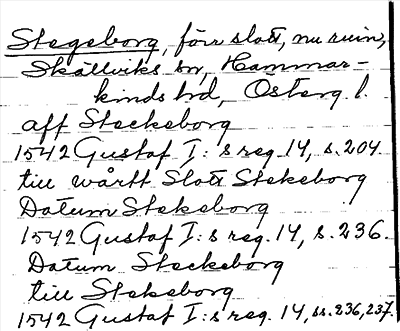 Stegeborg, förr slott, nu ruin,
Skällviks sn, Hammar-
kinds hd, Österg. l.
aff Steckeborg
1542 Gustaf I:s reg. 14, s. 204.
till wårtt Slott Stekeborg
Datum Stekeborg
1542 Gustaf I:s reg. 14, s. 236.
Datum Steckeborg
till Stekeborg
1542 Gustaf I:s reg. 14, ss. 236, 237.